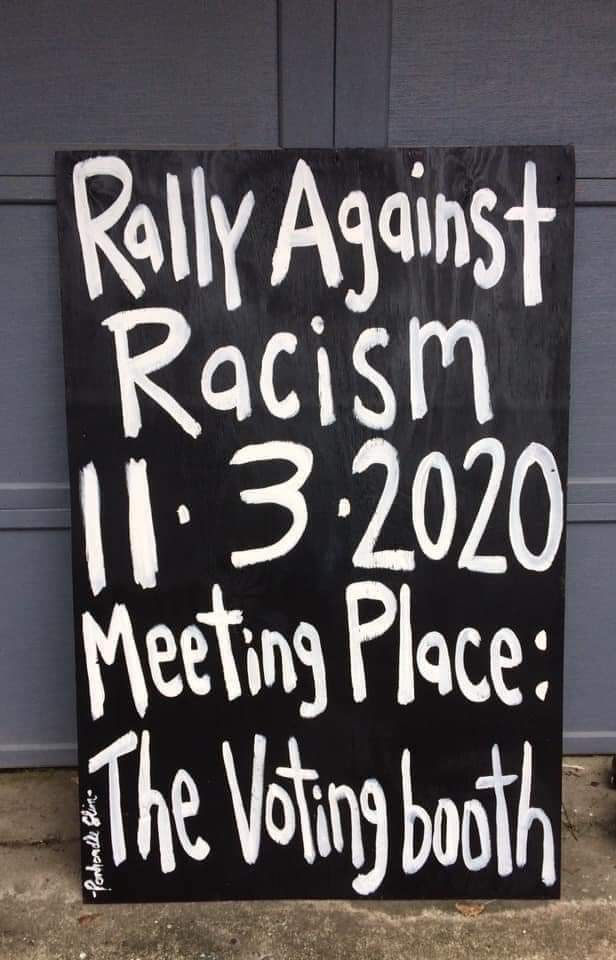 Rally Against
Racism
11·3·2020
Meeting Place:
The Voting booth
-Panhandle Slim-